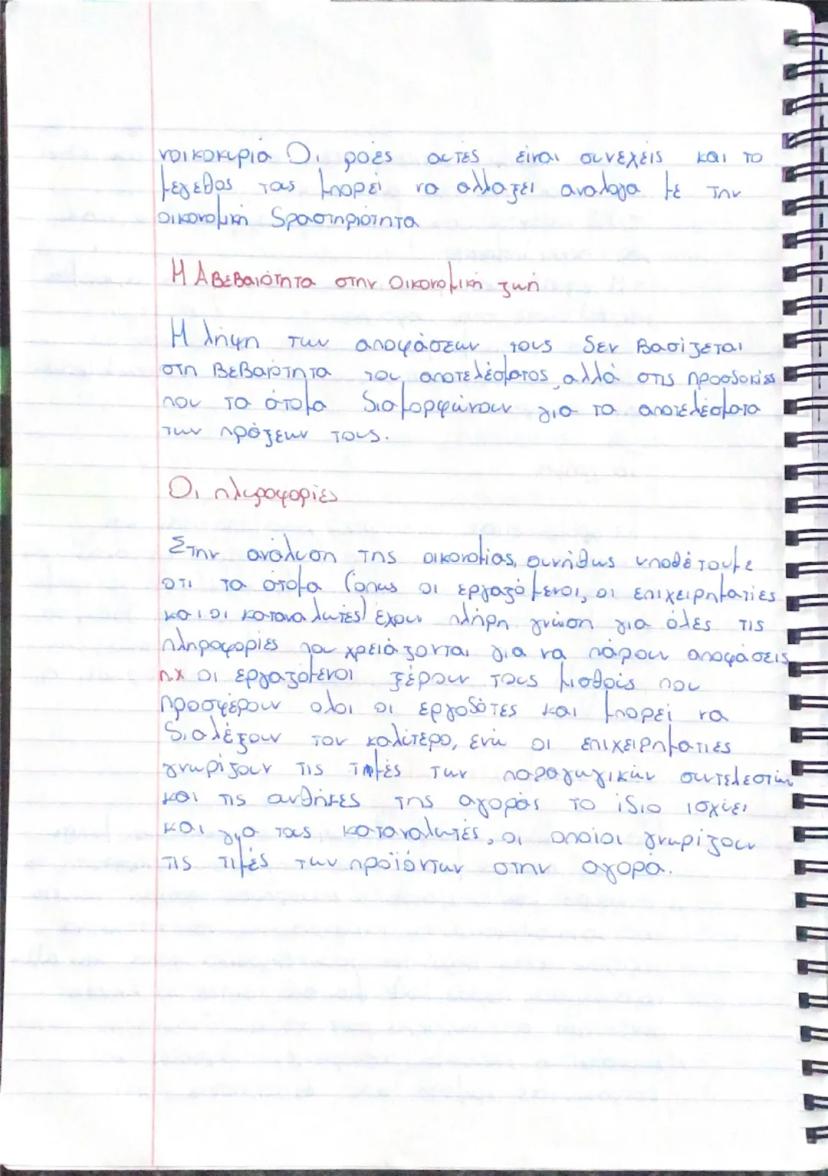 νοικοκυριά Οι ροές αυτές είναι συνεχείς και το
μεγεθος τους μπορεί να αλλαξει αναλογα με την
οικονομική δραστηριότητα
Η Αβεβαιότητα στην Οικονομική ζωή
Η λήψη των αποφάσεων τους δεν βασίζεται
στη βεβαιότητα του αποτελέσματος, αλλά στις προσδοκίες
που τα άτομα διαμορφώνουν για τα αποτελέσματα
των πράξεων τους.
Οι πληροφορίες
Στην ανάλυση της οικονομίας, συνήθως υποθέτουμε
οτι τα άτομα (όπως οι εργαζόμενοι, οι επιχειρηματίες
και οι καταναλωτές) έχουν πλήρη γνώση για όλες τις
πληροφορίες που χρειάζονται για να πάρουν αποφάσεις
π.χ οι εργαζόμενοι ξέρουν τους μισθούς που
προσφέρουν ολοι οι εργοδότες και μπορεί να
διαλέξουν τον καλύτερο, ενώ οι επιχειρηματιες
γνωρίζουν τις τιμές των παραγωγικών συντελεστών
και τις συνθήκες της αγοράς το ίδιο ισχύει
και για τους καταναλωτές, οι οποίοι γνωρίζουν
τις τιμές των προϊόντων στην αγορά.